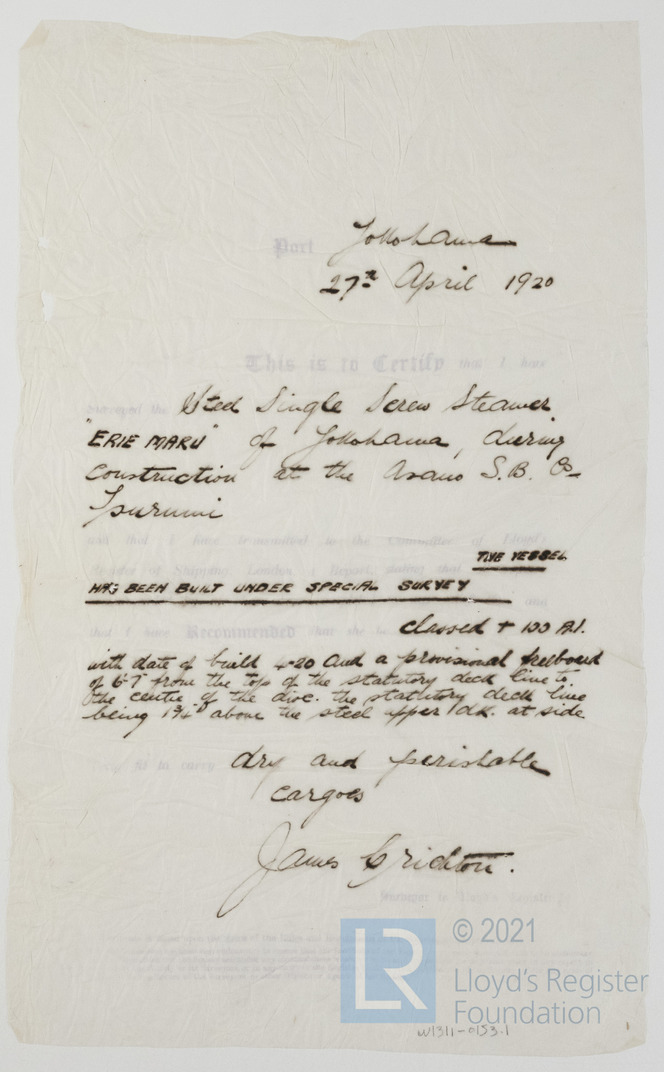 Port Yokohama
27th April 1920
This is to Certify that I have
Surveyed the Steel Single Screw Steamer
"ERIE MARU" of Yokohama, during
construction at the Asano S.B. Co
Tsurumi
and that I have transmitted to the Committee of Lloyd's
Register of Shipping, London, a Report, stating that THE VESSEL
HAS BEEN BUILT UNDER SPECIAL SURVEY
and
that I have Recommended that she be classed + 100 A1.
with date of build 4-20 and a provisional freeboard
of 6'-7 from the top of the statutory deck line to
the centre of the disc. the statutory deck line
being 1¾" above the steel upper dk. at side
fit to carry dry and perishable
cargoes
James Crichton.
Surveyor to Lloyd's Register
© 2021
LR
Lloyd's Register
Foundation
W1311-0153-1